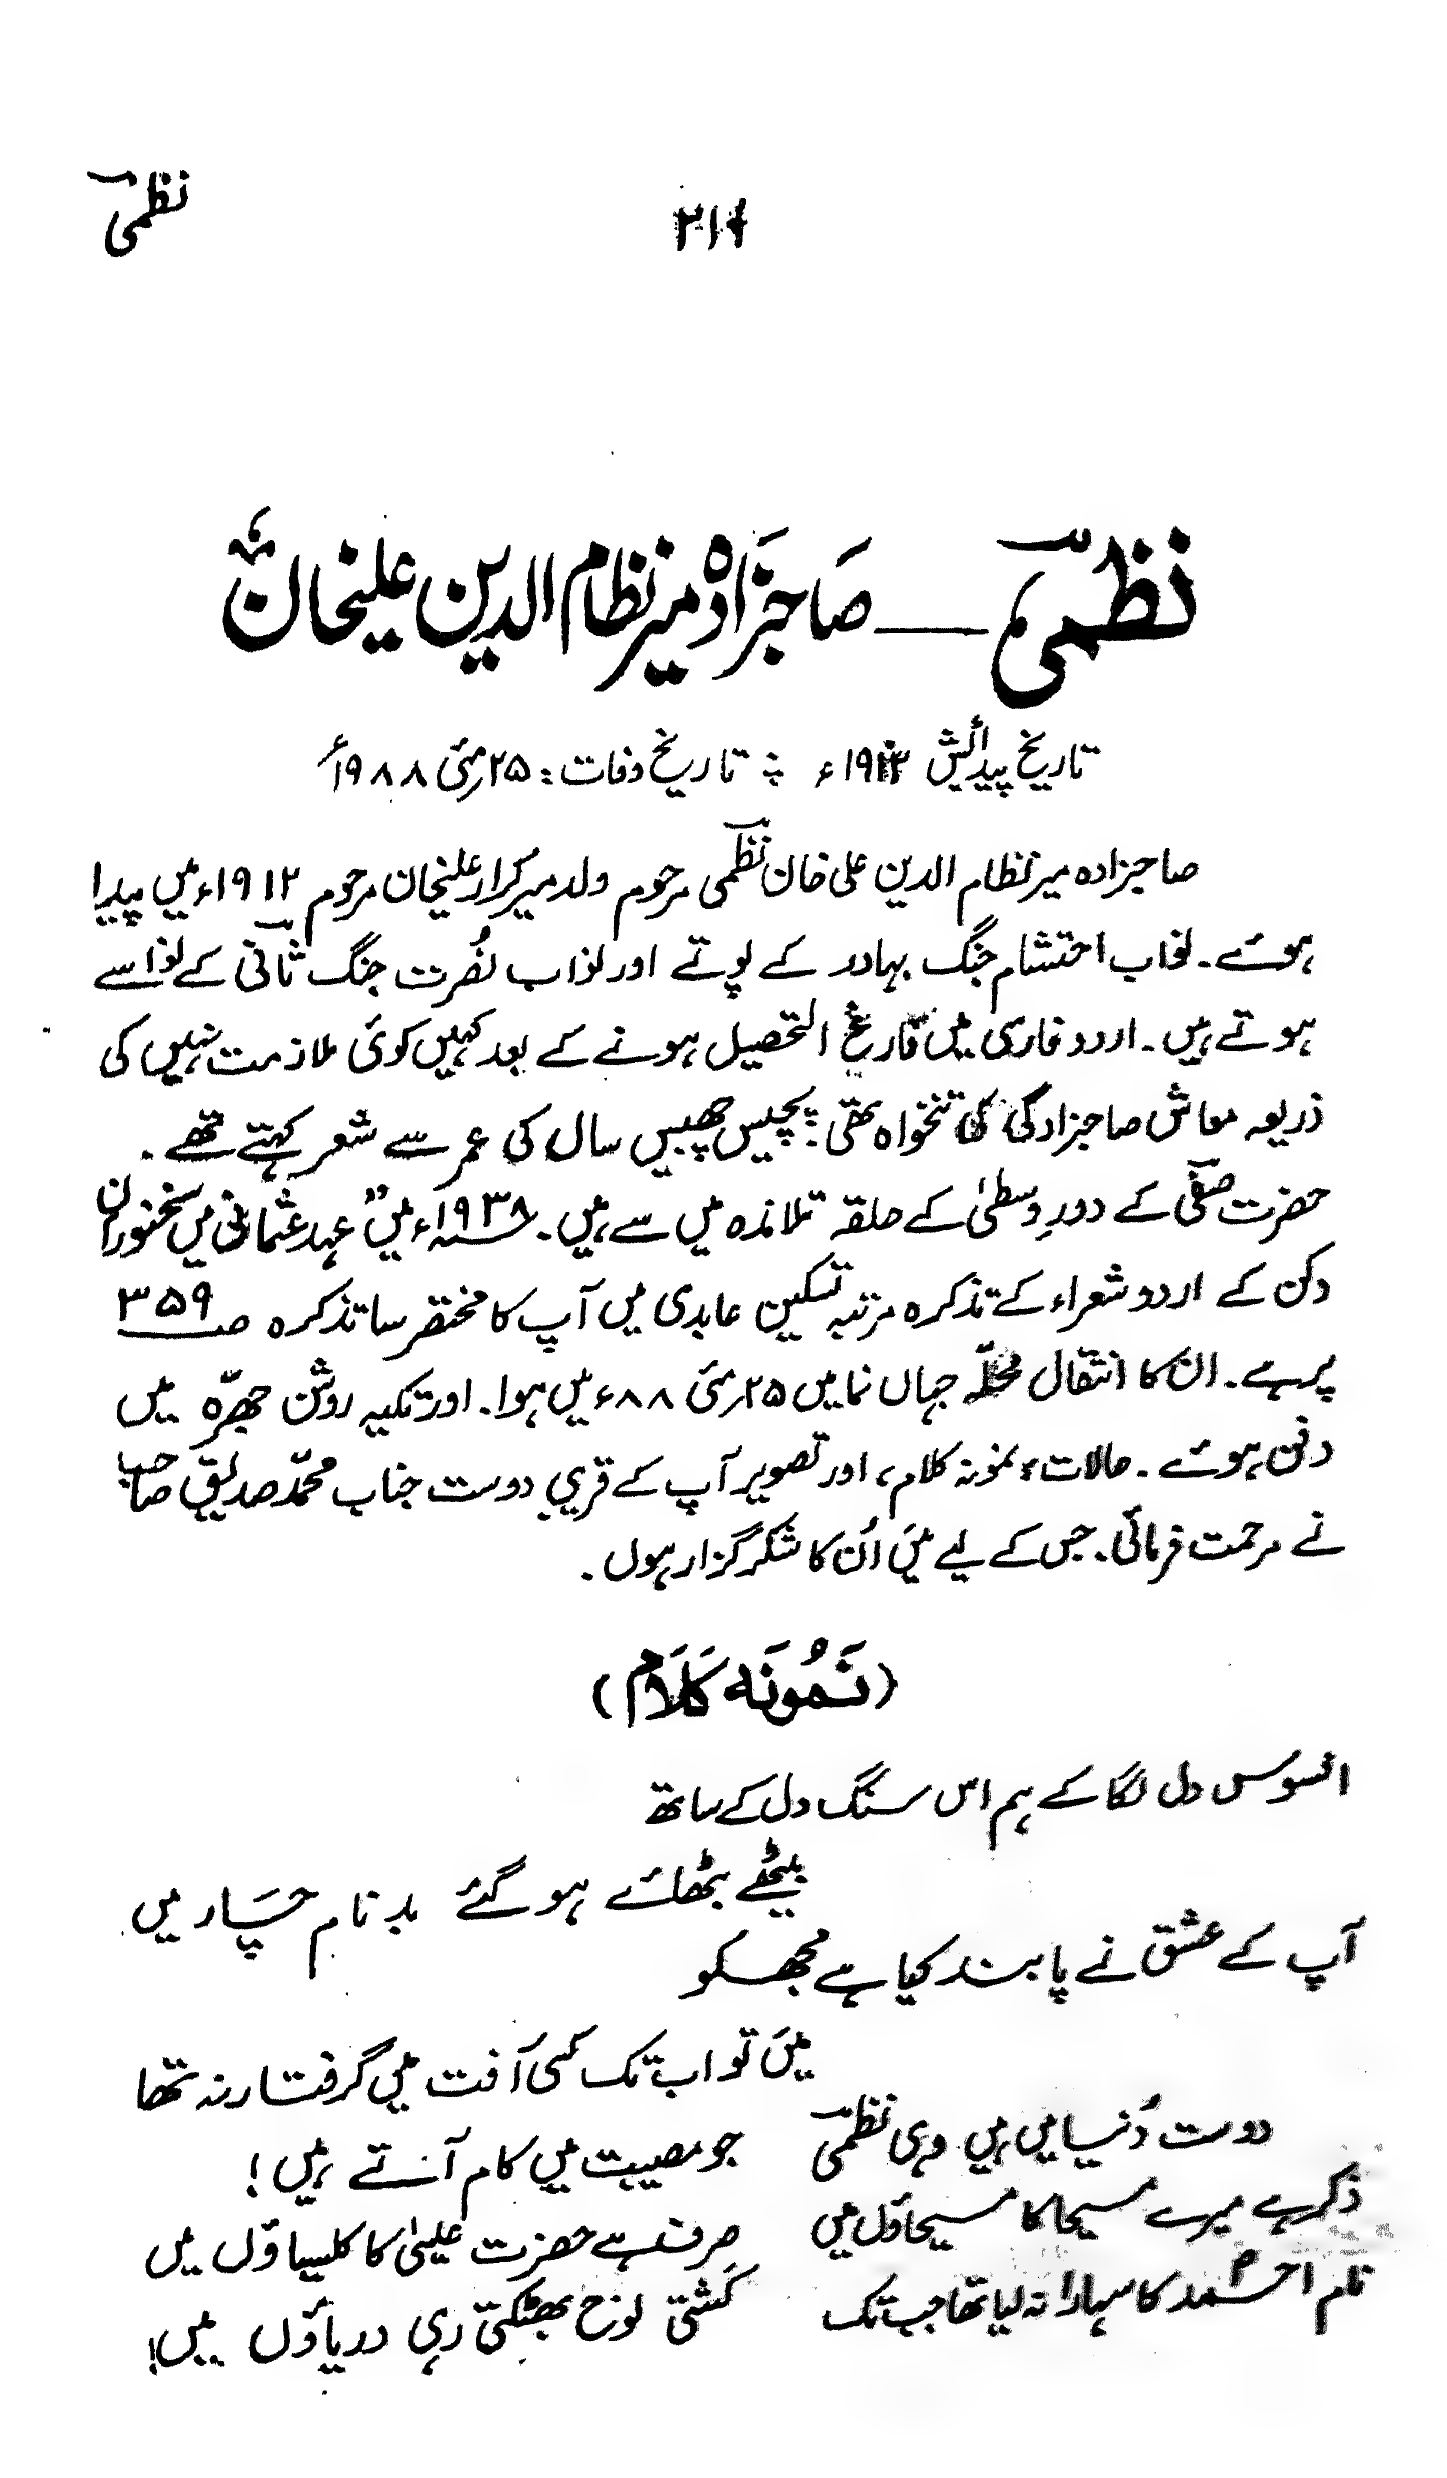 نظمی
۲۱۶
نظمیؔ — صاحبزادہ میر نظام الدین علیخانؒ
تاریخ پیدائش ۱۹۱۲ء ؞ تاریخ وفات: ۲۵؍مئی ۱۹۸۸ء
صاحبزادہ میر نظام الدین علی خان نظمیؔ مرحوم ولد میر کرار علیخان مرحوم ۱۹۱۲ء میں پیدا
ہوئے۔ نواب احتشام جنگ بہادر کے پوتے اور نواب نصُرت جنگ ثانی کے نواسے
ہوتے ہیں۔ اردو فارسی میں فارغ التحصیل ہونے کے بعد کہیں کوئی ملازمت نہیں کی
ذریعہ معاش صاحبزادگی کی تنخواہ تھی؛ پچیس چھبیس سال کی عمر سے شعر کہتے تھے۔
حضرت صفیؔ کے دورِ وسطیٰ کے حلقہ تلامذہ میں سے ہیں۔ ۱۹۳۸ء میں ”عہد عثمانی میں سخنوران
دکن کے اردو شعراء کے تذکرہ مرتبہ تسکین عابدی میں آپ کا مختصر سا تذکرہ صـ ۳۵۹
پر ہے۔ ان کا انتقال محلّہ جہاں نما میں ۲۵؍مئی ۸۸ء میں ہوا۔ اور تکیہ روشن چھرّہ میں
دفن ہوئے۔ حالات، نمونہ کلام، اور تصویر آپ کے قریبی دوست جناب محمّد صدیق صاحب
نے مرحمت فرمائی۔ جس کے لیے میَں اُن کا شکر گزار ہوں۔
(نَمُونَہ کَلَام)
افسوس دل لگا کے ہم اس سنگ دل کے ساتھ
بیٹھے بٹھائے ہو گئے بدنام چَار میں
آپ کے عشق نے پابند کیا ہے مجھکو
میَں تو اب تک کسی آفت میں گرفتار نہ تھا
دوست دُنیا میں ہیں وہی نظمیؔ جو مصیبت میں کام آتے ہیں!
ذکر ہے میرے مسیحا کا مسیحاؤں میں صرف ہے حضرت عیسیٰ کا کلیساؤں میں
نام احمدؐ کا سہارا نہ لیا تھا جب تک کَشتی نوح بھٹکتی رہی دریاؤں میں!